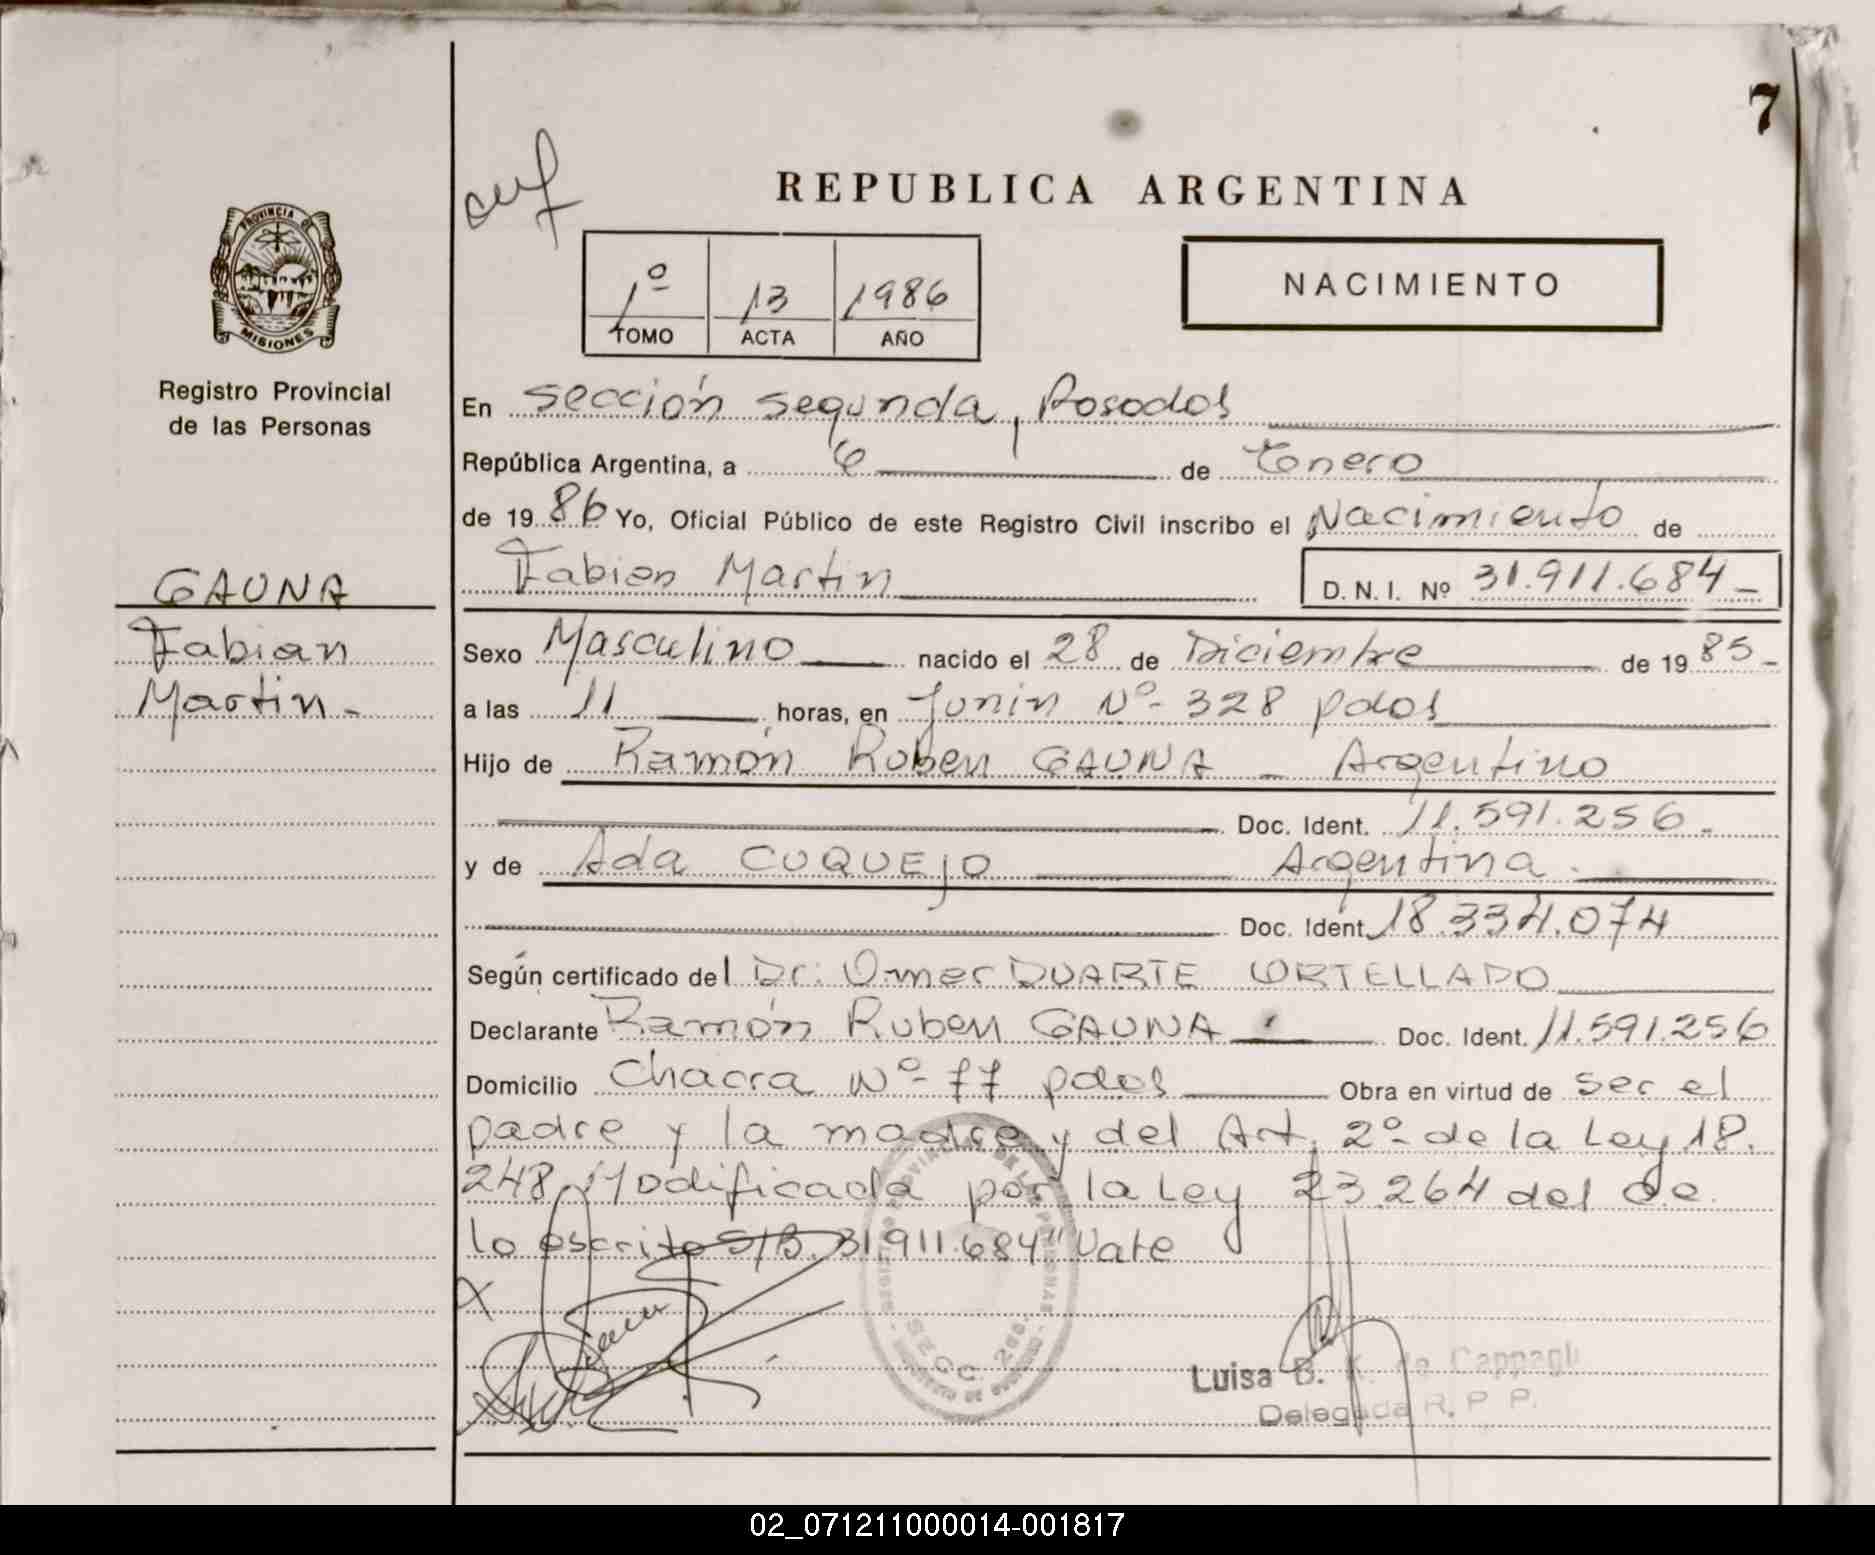 7
REPUBLICA ARGENTINA
NACIMIENTO
1º 13 1986
TOMO ACTA AÑO
PROVINCIA DE
MISIONES
Registro Provincial
de las Personas
GAUNA
Fabian
Martin -
En Sección Segunda, Posadas
República Argentina, a 6 de Enero
de 19 86 Yo, Oficial Público de este Registro Civil inscribo el Nacimiento de
Fabian Martin D. N. I. Nº 31.911.684 -
Sexo Masculino nacido el 28 de Diciembre de 19 85 -
a las 11 horas, en Junin Nº 328 pdas
Hijo de Ramón Ruben GAUNA - Argentino
Doc. Ident. 11.591.256 -
y de Ada CUQUEJO Argentina.
Doc. Ident. 18.334.074
Según certificado del Dr. Omer DUARTE ORTELLADO
Declarante Ramón Ruben GAUNA Doc. Ident. 11.591.256
Domicilio Chacra Nº 77 pdas Obra en virtud de ser el
padre y la madre y del Art. 2º de la Ley 18.
248 Modificada por la Ley 23.264 del
lo escrito S/B. 31.911.684" Vale
SECC. 2da.
Luisa B. K. de Cappagli
Delegada R. P. P.
02_071211000014-001817